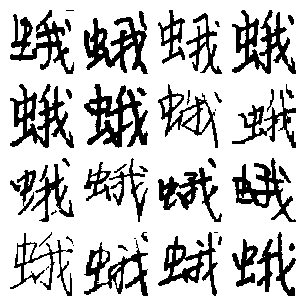 蛾蛾蛾蛾
蛾蛾蛾蛾
蛾蛾蛾蛾
蛾蛾蛾蛾